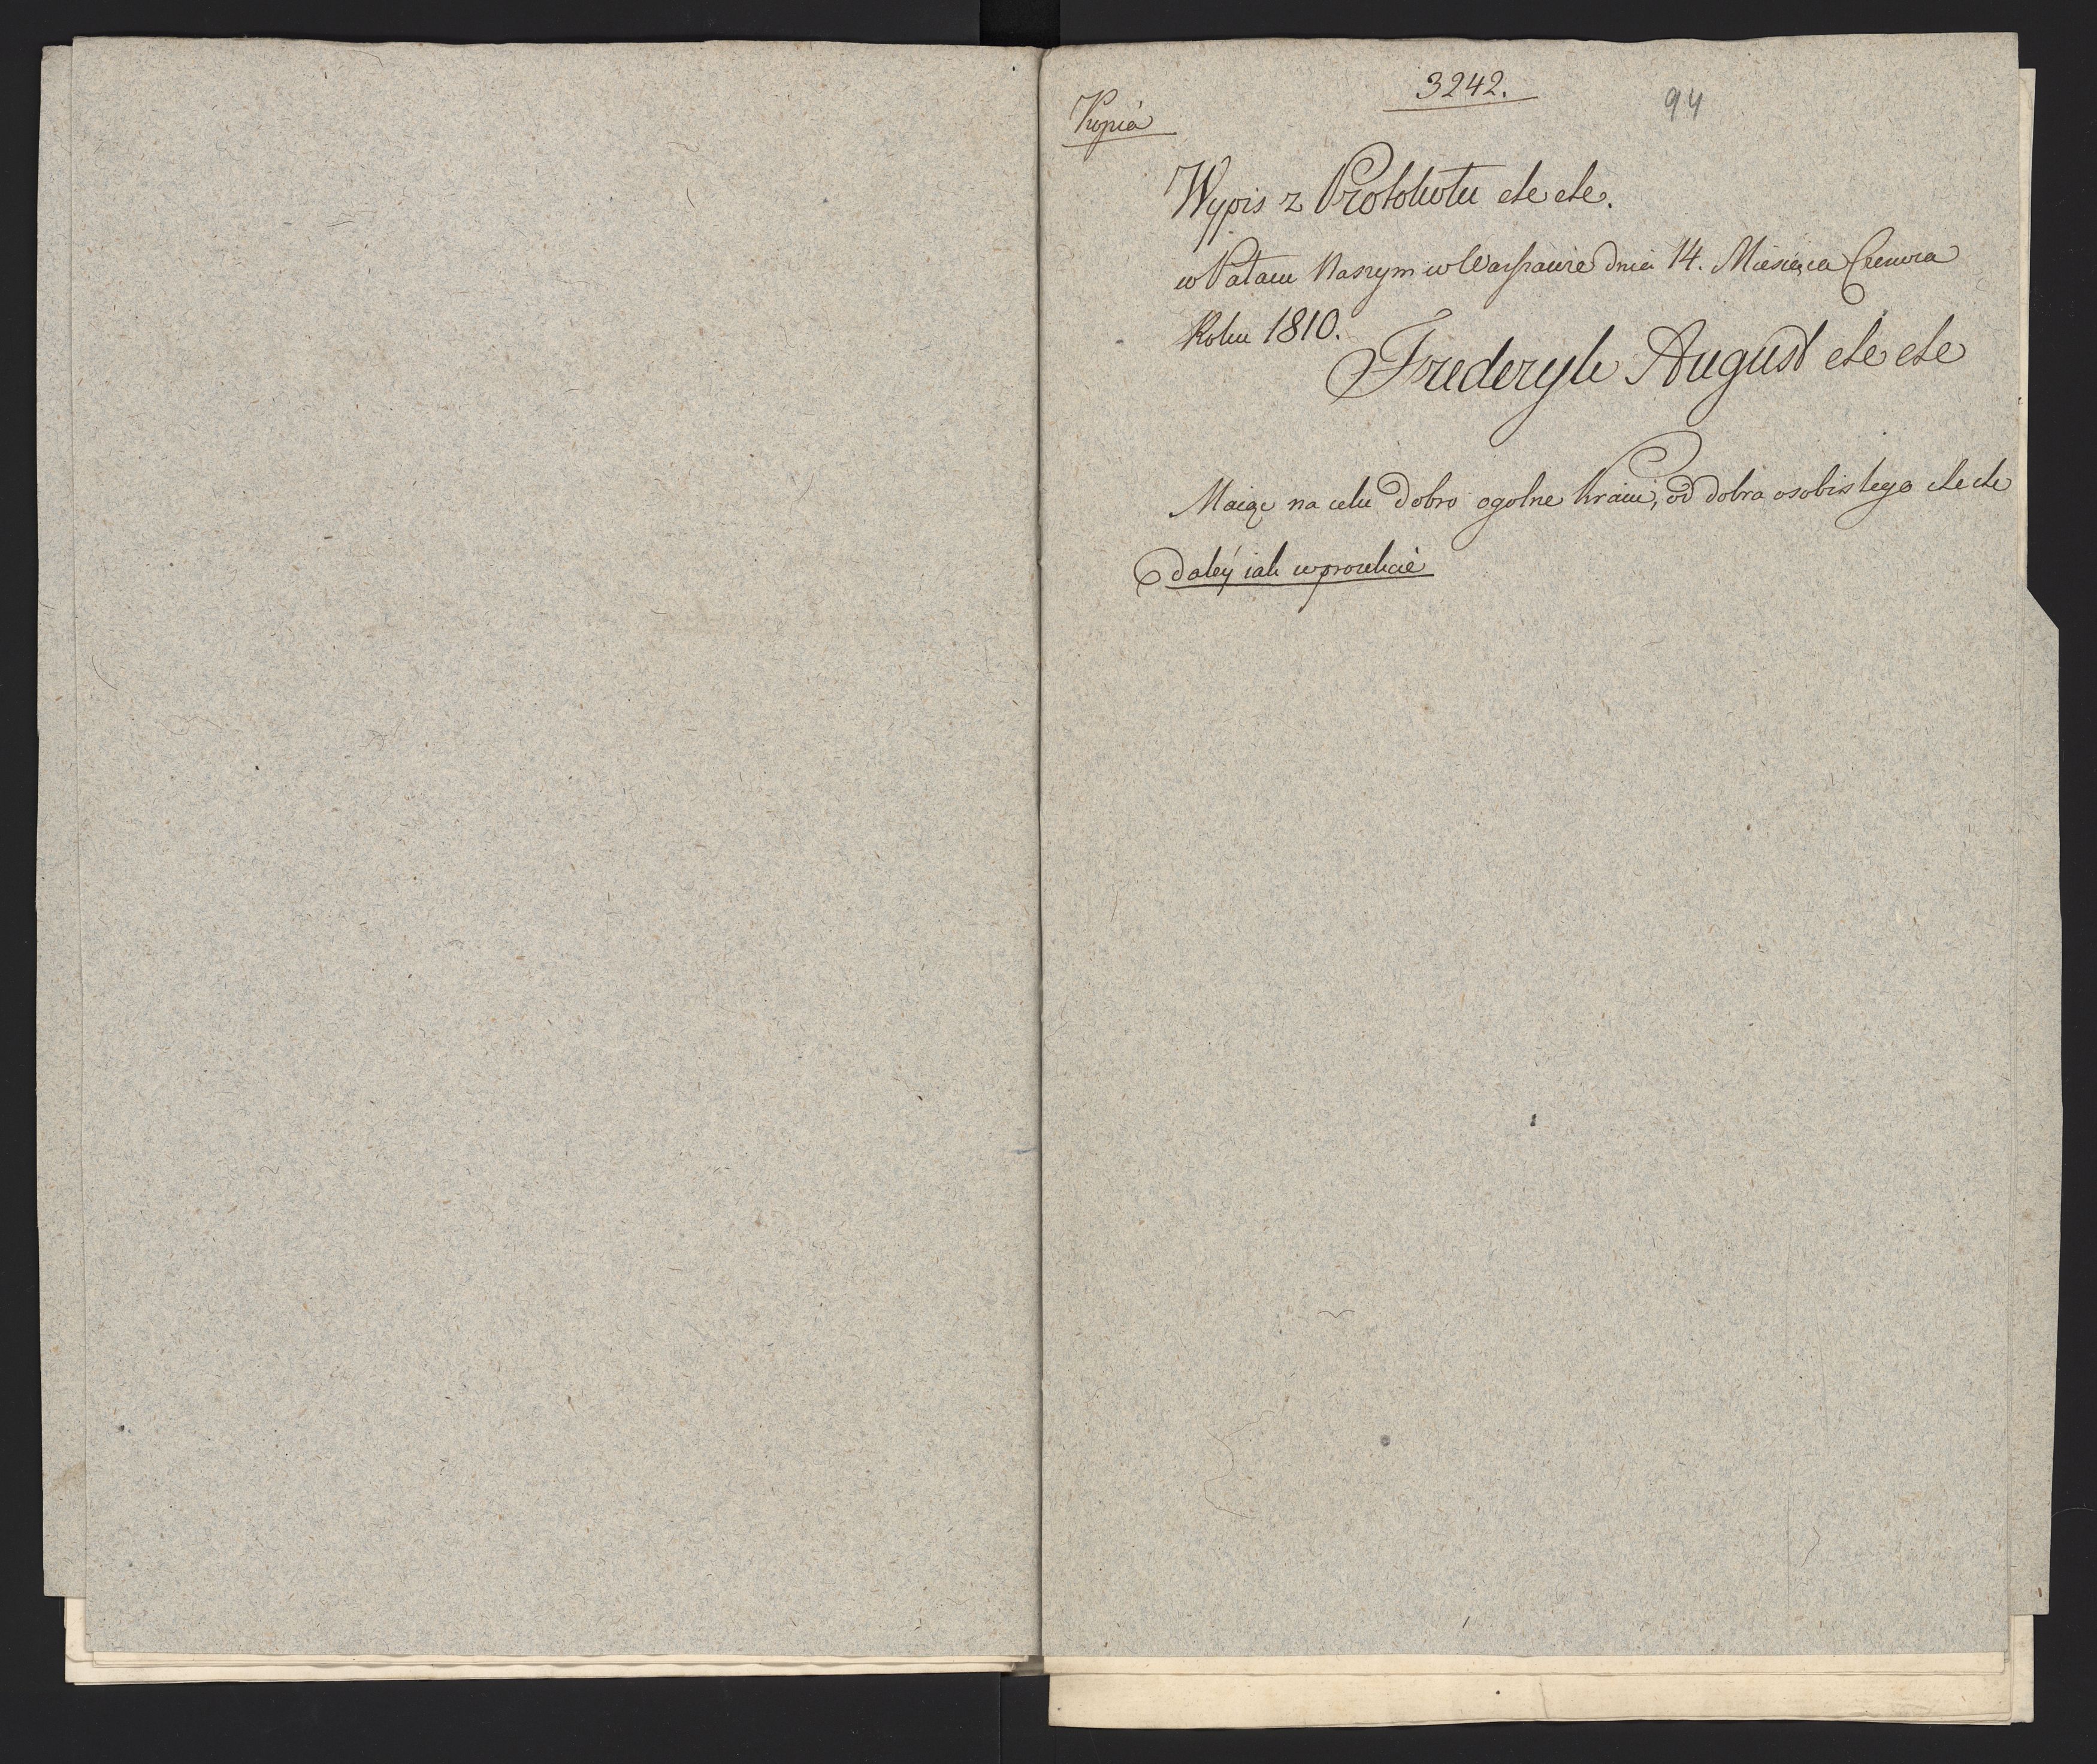 3242.
94
Kopia
Wypis z Protokołu etc etc.
w Pałacu Naszym w Warszawie dnia 14. Miesięca Czerwca
Roku 1810.
Frederyk August etc etc
Maiąc na celu dobro ogolne kraiu, od dobra osobistego etc etc
daley iak w proiekcie